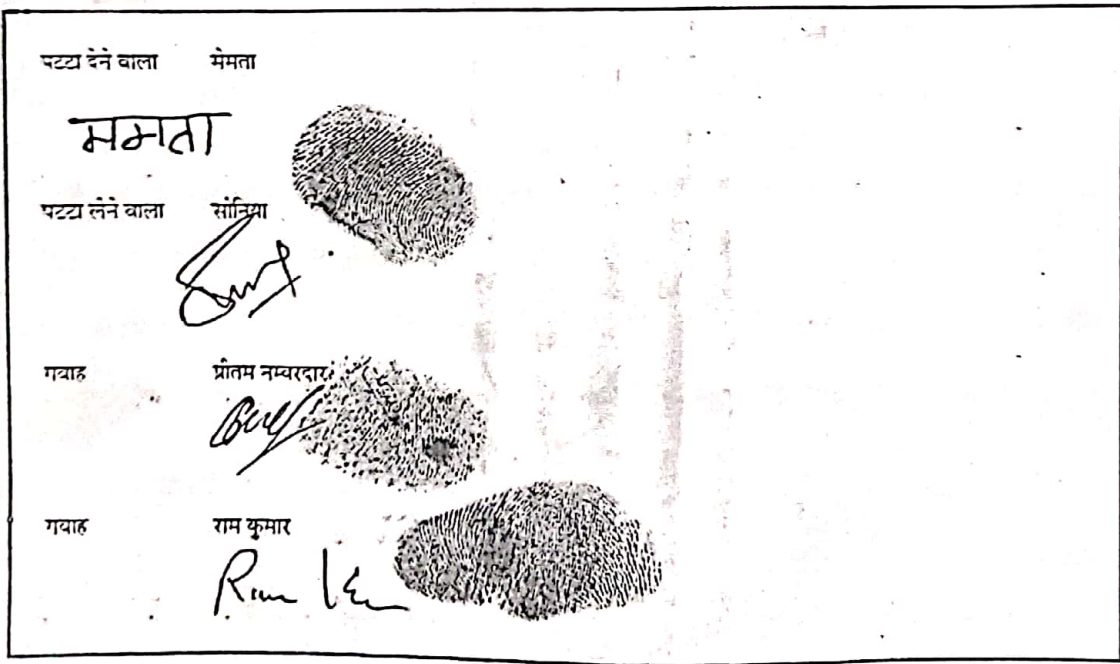 पटटा देने वाला मेमता
ममता
पटटा लेने वाला सोनिया
गवाह प्रीतम नम्बरदार
गवाह राम कुमार
Ram